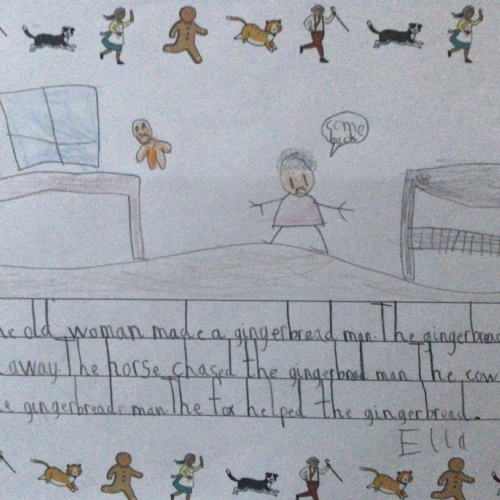 come
back
he old woman made a gingerbread man. The gingerbread
away The horse chased the gingerbread man The cow
e gingerbreade man The fox helped the gingerbread.
Ella